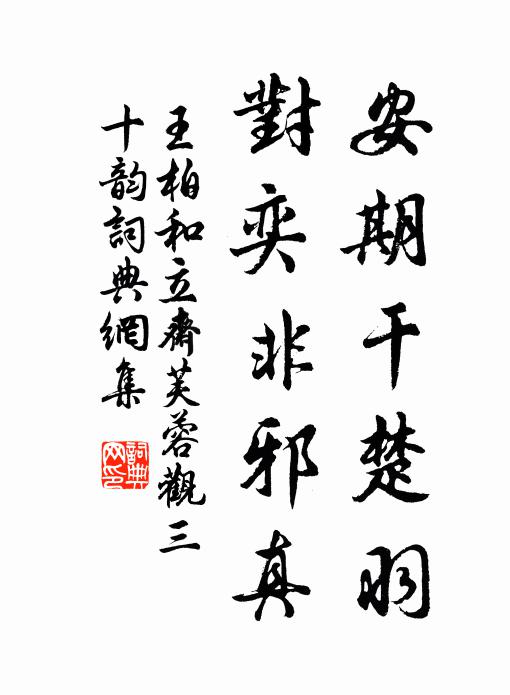 安期干楚羽
對奕非邪真
王柏和立齋芙蓉觀三
十韵詞典網集
詞典网印